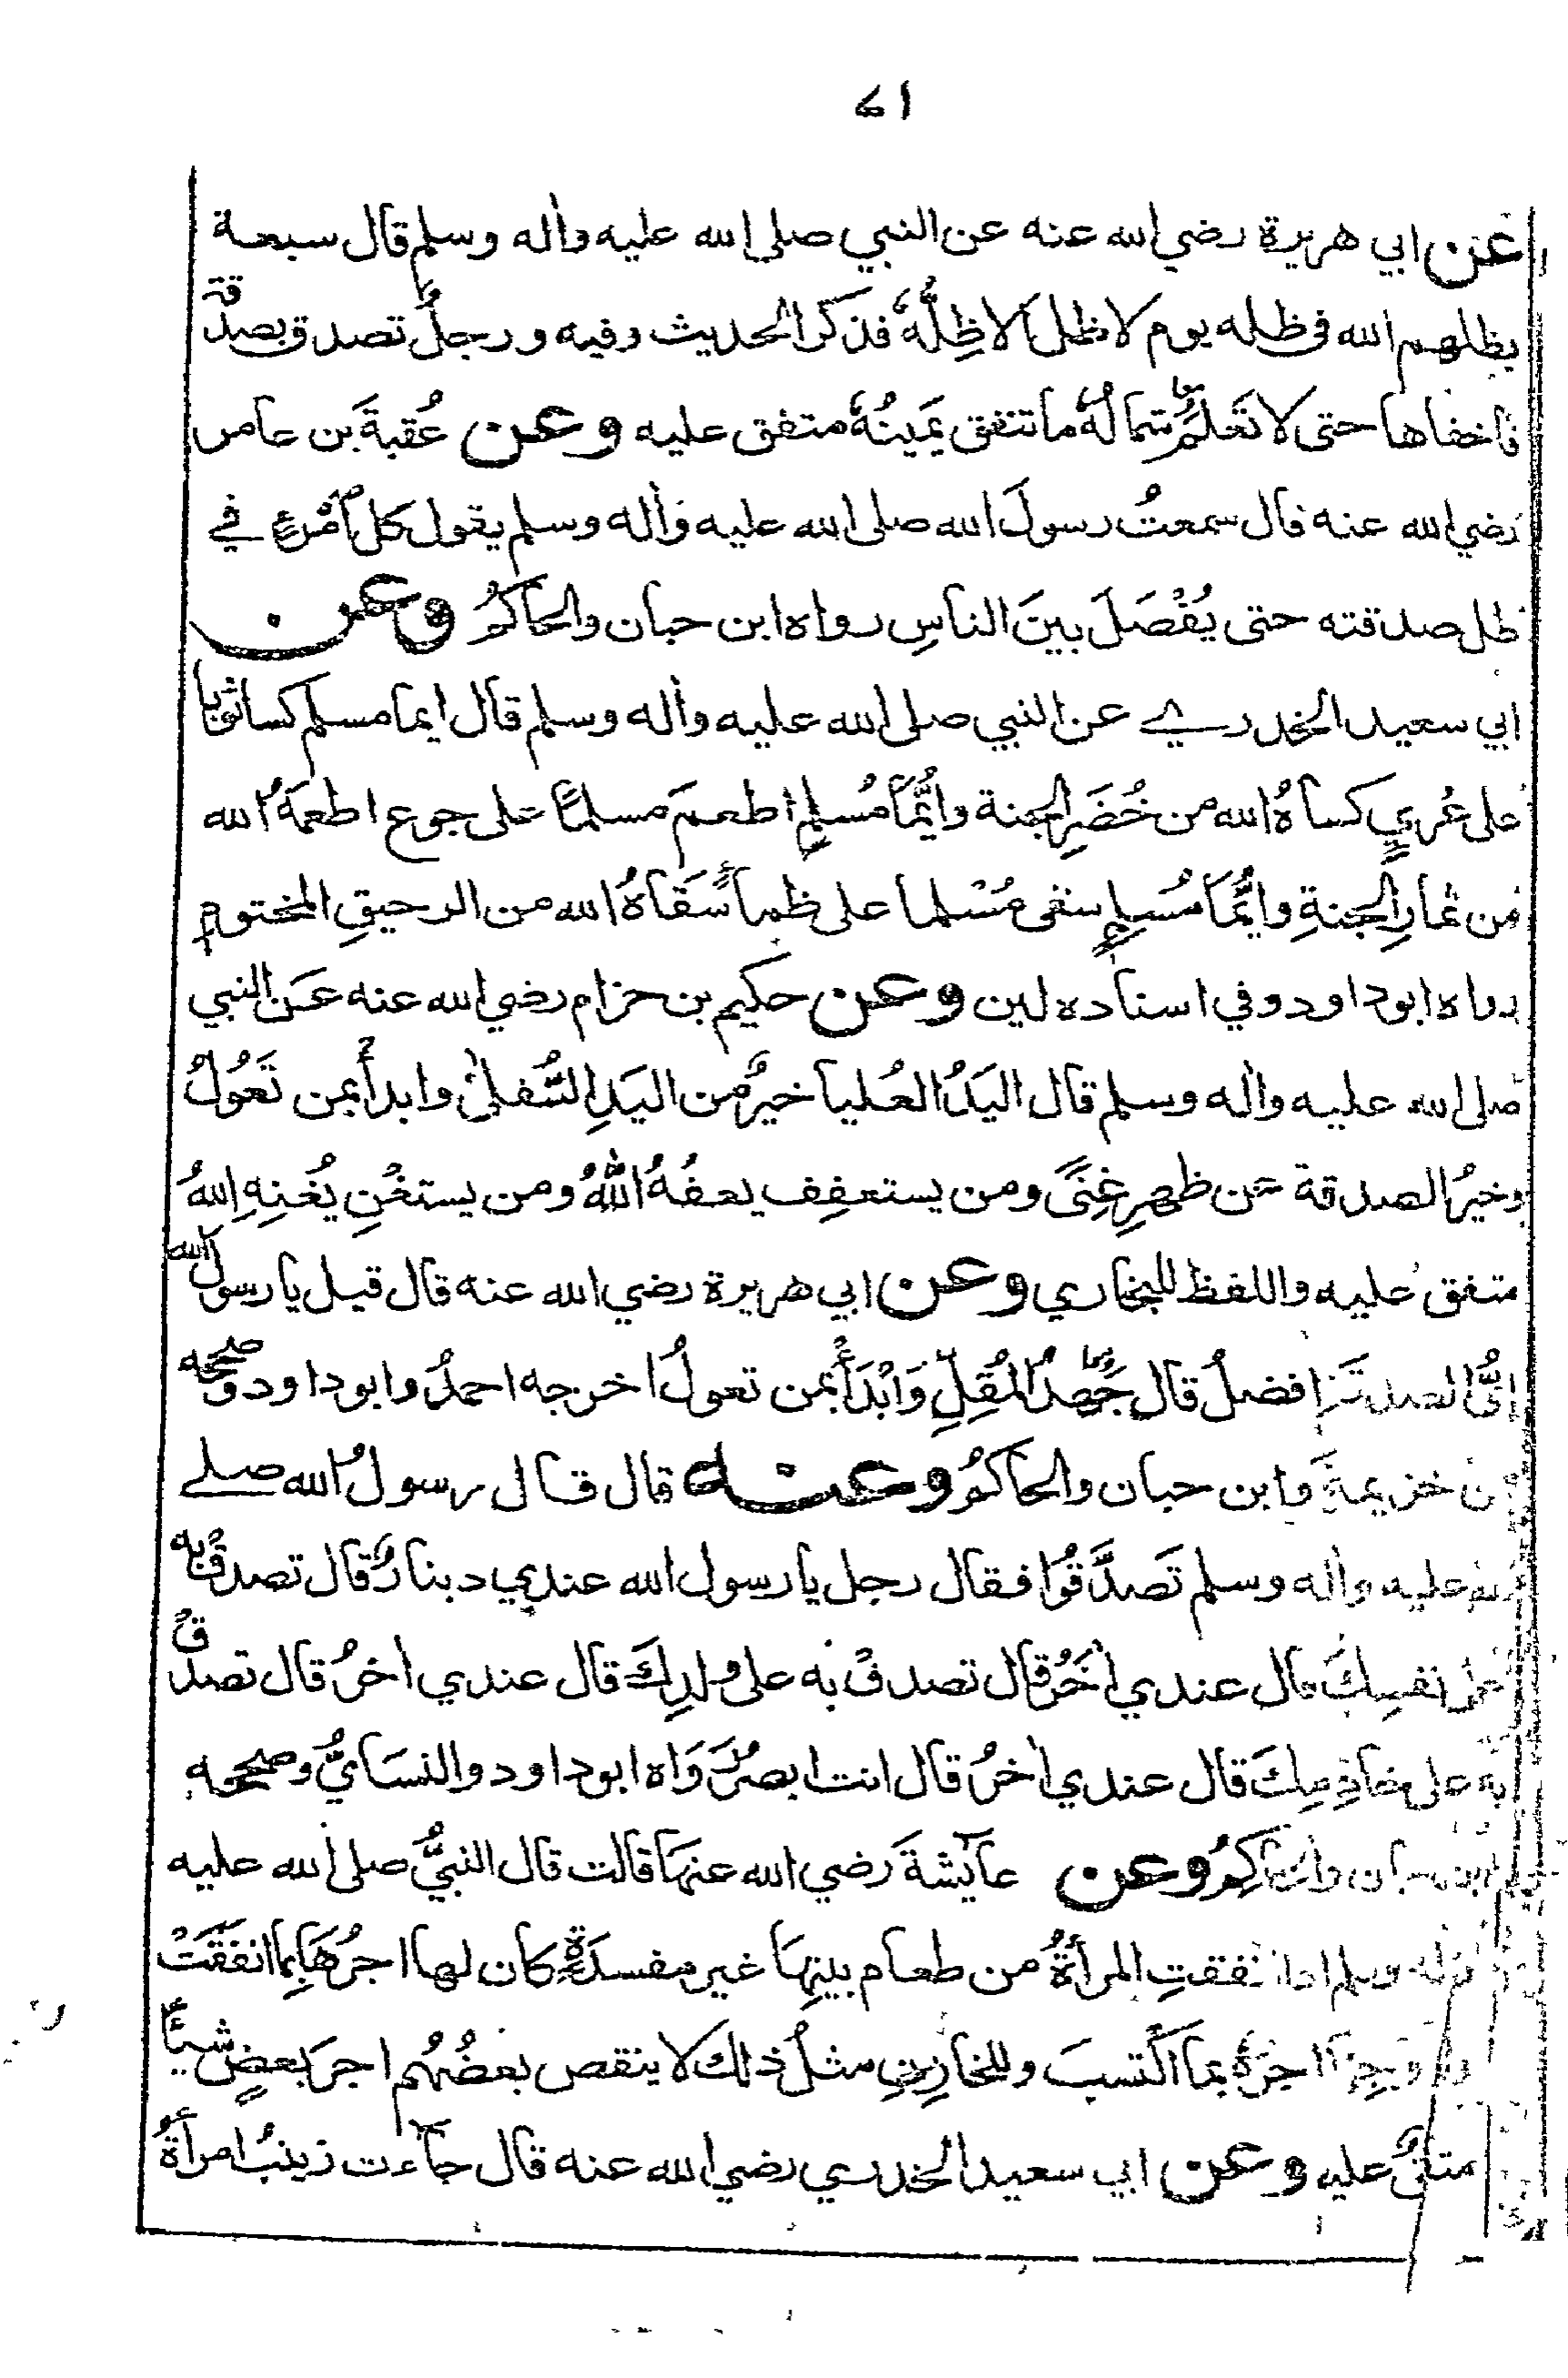 ٤١
عن ابي هريرة رضي الله عنه عن النبي صلى الله عليه واله وسلم قال سبعة
يظلهم الله في ظله يوم لا ظل الا ظِلُّهُ فذكر الحديث وفيه ورجلٌ تصدق بصدقة
فاخفاها حتى لا تَعلَمُ شمالُهُ ما تنفق يَمِينُهُ متفق عليه وعن عُقبةَ بن عامر
رضي الله عنه قال سمعتُ رسولَ الله صلى الله عليه واله وسلم يقول كل امْرءٍ في
ظل صدقته حتى يُفْصَلَ بينَ الناسِ رواه ابن حبان والحاكمُ وعن
ابي سعيد الخدري عن النبي صلى الله عليه واله وسلم قال ايما مسلم كسا ثوبا
على عُريٍ كساهُ الله من خُضَرِ الجنة وايُّمَا مُسلِمٍ اطعمَ مسلمًا على جوع اطعمَهُ الله
من ثمارِ الجنةِ وايُّمَا مُسلِمٍ سقى مُسْلما على ظمأٍ سَقَاهُ الله من الرحيقِ المختوم
رواه ابو داود وفي اسناده لين وعن حكيم بن حزام رضي الله عنه عن النبي
صلى الله عليه واله وسلم قال اليَدُ العُليا خيرٌ من اليَدِ السُّفلىٰ وابدأْ بمن تَعُولُ
وخيرُ الصدقة عن ظهرِ غِنًى ومن يستعفِف يعفُهُ اللهُ ومن يستغْنِ يُغنِهِ اللهُ
متفق عليه واللفظ للبخاري وعن ابي هريرة رضي الله عنه قال قيل يا رسول الله
ايُّ الصدقةِ افضلُ قال جُهدُ المُقِلِّ وَابْدَأْ بمن تعولُ اخرجه احمدُ وابو داود وصححه
بن خزيمةَ وابن حبان والحاكمُ وعنه قال قال رسولُ الله صلى
الله عليه واله وسلم تَصَدَّقُوا فقال رجل يا رسول الله عندي دينارٌ قال تصدقْ به
على نفسِكَ قال عندي اخَرُ قال تصدقْ به على ولدِكَ قال عندي اخرُ قال تصدقْ
به على خادِمِكَ قال عندي اخرُ قال انت ابصرُ رَوَاه ابو داود والنسَائيُّ وصححه
ابن حبان والحاكِمُ وعن عائشةَ رضي الله عنهَا قالت قال النبيُّ صلى الله عليه
واله وسلم اذا انفقتِ المرأةُ من طعام بيتِهَا غير مفسدَةٍ كان لها اجرُهَا بما انفَقَتْ
ولزوجِهَا اجرُهُ بما اكْتَسبَ وللخازِنِ مثلُ ذلك لا ينقص بعضُهُم اجرَ بعضٍ شيأً
متفقٌ عليه وعن ابي سعيد الخدري رضي الله عنه قال جآءت زينبُ امرأةُ